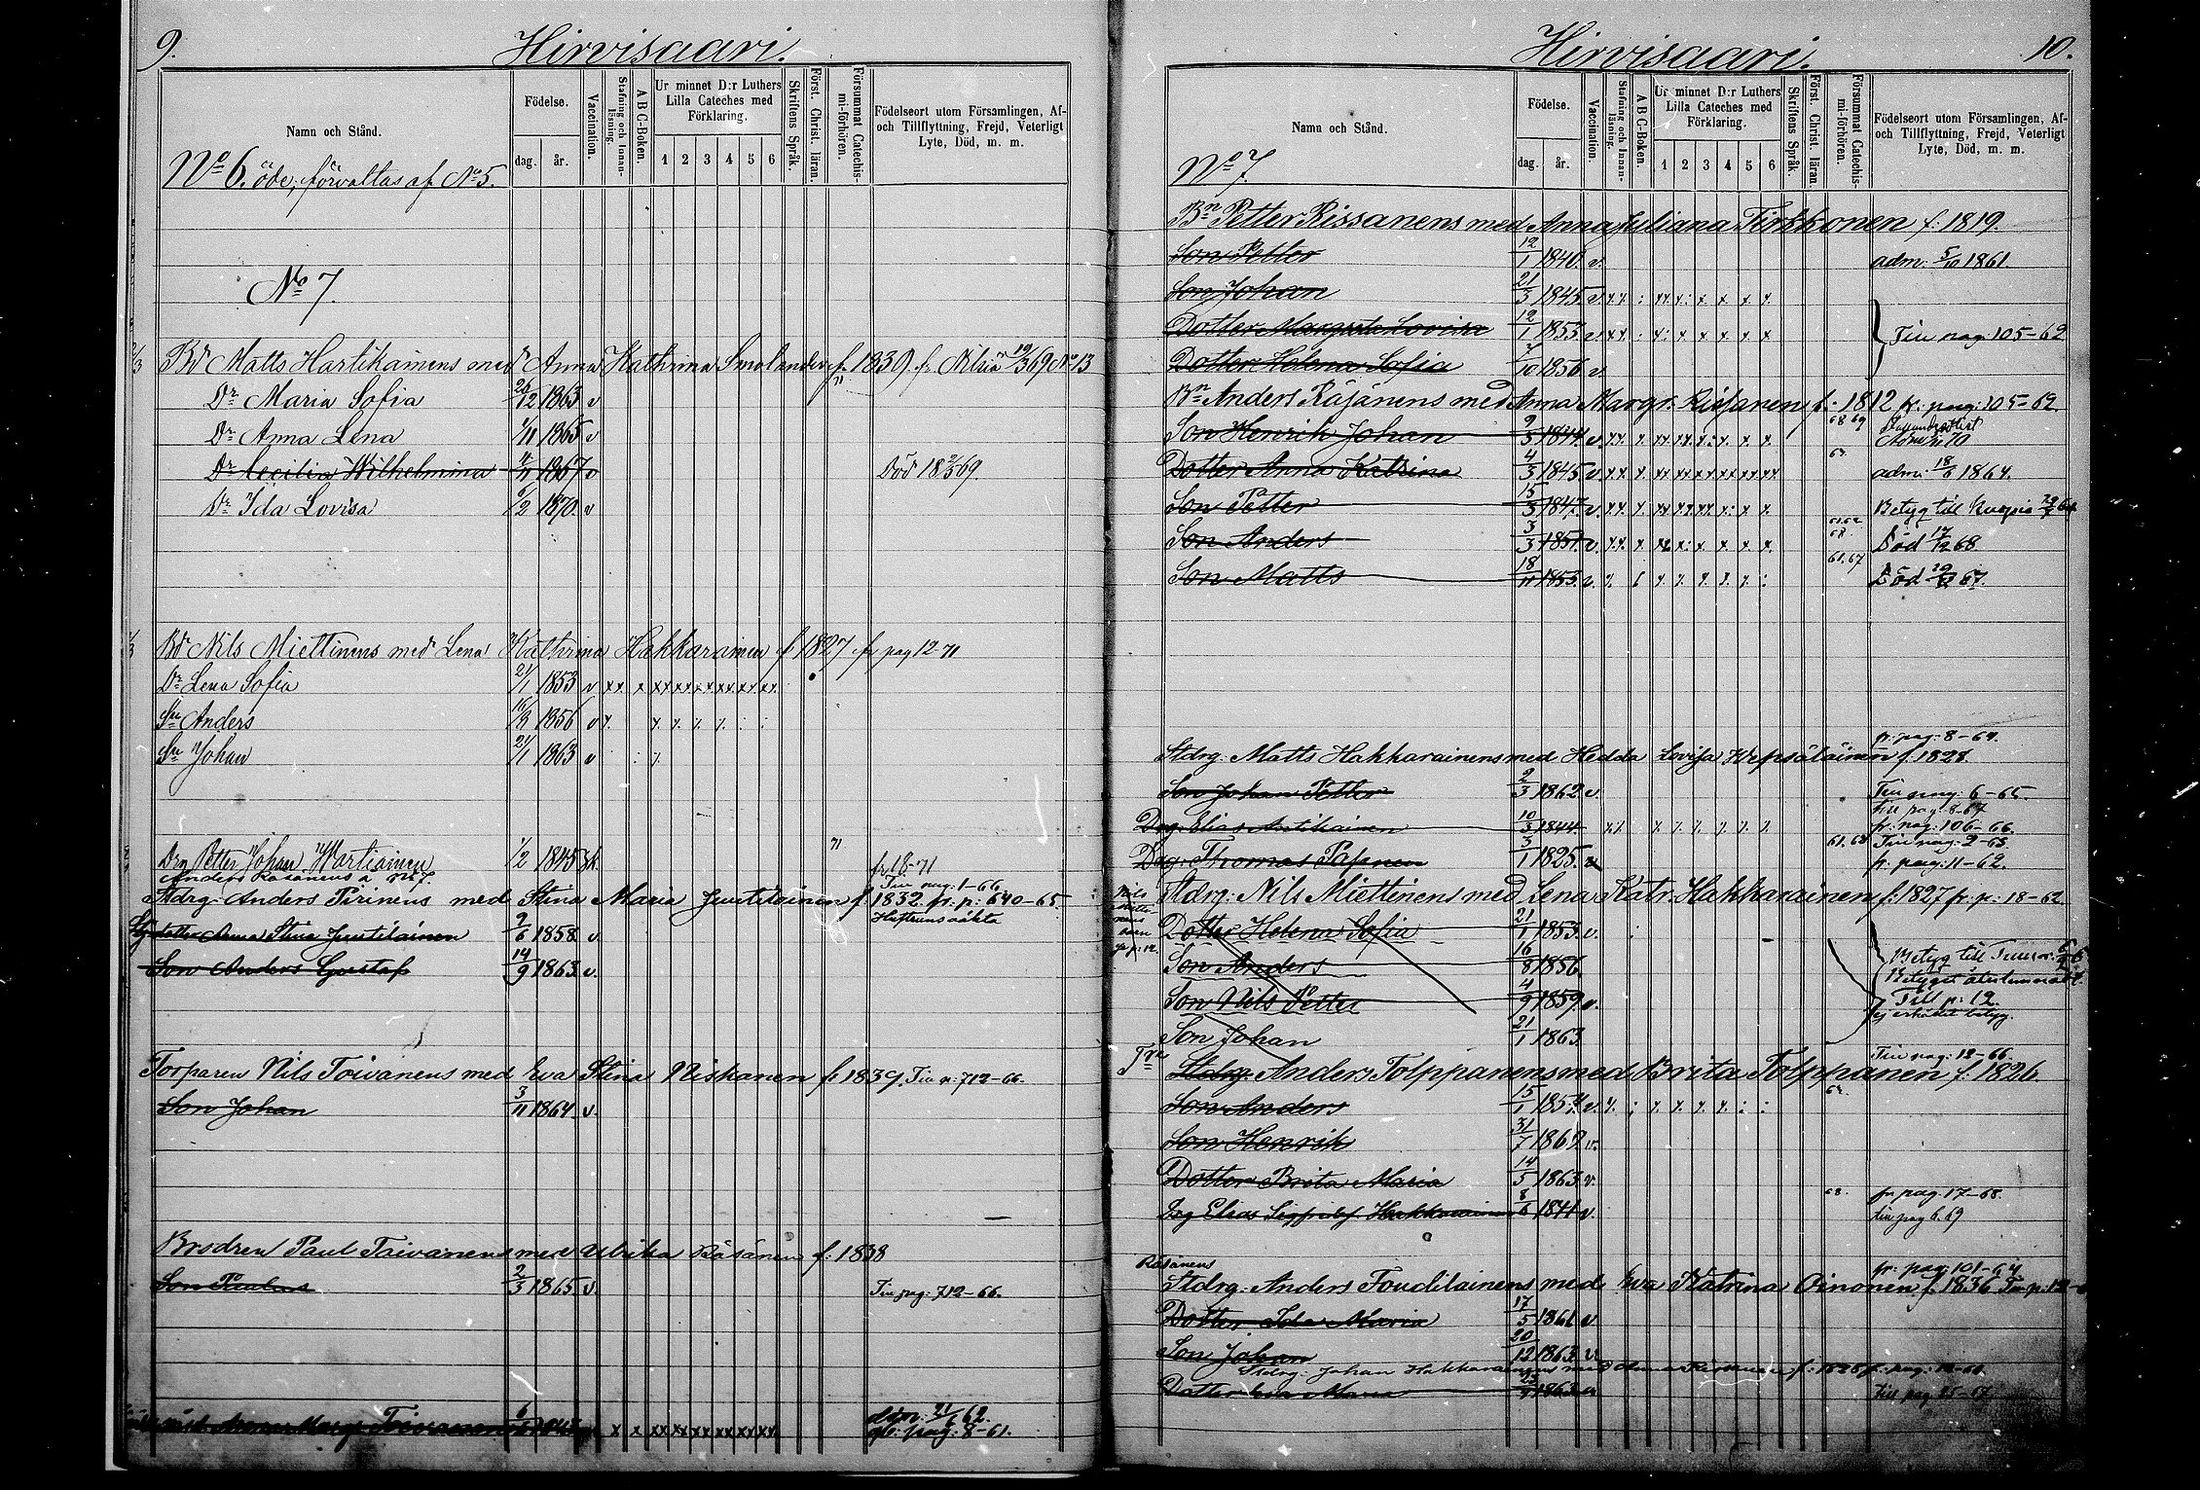 9.
Hirvisaari.
Namn och Stånd.
Födelse.
dag.
år.
Vaccination.
Stafning och Innanläsning.
A B C-Boken.
Ur minnet D:r Luthers Lilla Cateches med Förklaring.
1 2 3 4 5 6
Skriftens Språk.
Först. Christ. läran.
Försummat Catechismi-förhören.
Födelseort utom Församlingen, Af- och Tillflyttning, Frejd, Veterligt Lyte, Död, m. m.
No 6. öde, förvaltas af No 5.
No 7.
Bd Matts Hartikainens med Anna Kathrina Smolander f. 1839. fr Nilsiä 19/3 69 No 13
Dr Maria Sofia 26/12 1863 v
Dr Anna Lena 1/11 1865 v
Dr Cecilia Wilhelmina 1867 v Död 18 69.
Dr Ida Lovisa 1/2 1870 v
Bd Nils Miettinens med Lena Kathrina Hakkarainen f 1827 fr pag 12 71
Dr Lena Sofia 21/1 1853 v
Sn Anders 16/8 1856 v
Sn Johan 21/1 1863 v
Drg Petter Johan Martiainen 1/2 1845 71 fr 18-71
Anders Räsänens å No 7. Till pag. 1-66
Stdrg. Anders Piirinens med Stina Maria Juutilainen f 1832. fr. p: 640-65.
dotter Anna Stina Juutilainen 2/6 1858 v. Hustruns oäkta
Son Anders Gustaf 14/9 1863 v.
Torparen Nils Toivanens med Eva Stina Niskanen f. 1839 Till p: 712-66.
Son Johan 3/11 1864 v.
Brodren Paul Toivanens med Ulrika Räsänen f: 1838
Son Paulus 2/3 1865 v. Till pag: 712-66.
Anna Marg. Toivanen
adm: 21/6 62.
pag: 8-61.
10.
Hirvisaari.
Namn och Stånd.
Födelse.
dag.
år.
Vaccination.
Stafning och Innanläsning.
A B C-Boken.
Ur minnet D:r Luthers Lilla Cateches med Förklaring.
1 2 3 4 5 6
Skriftens Språk.
Först. Christ. läran.
Försummat Catechismi-förhören.
Födelseort utom Församlingen, Af- och Tillflyttning, Frejd, Veterligt Lyte, Död, m. m.
No 7.
Bn Petter Rissanens med Anna Juliana Tirkkonen f. 1819.
Son Petter 12/1 1840. v. adm. 5/10 1861.
Son Johan 21/3 1845 v.
Dotter Margreta Lovisa 12/1 1853 v. Till pag: 105-62
Dotter Helena Sofia 1856 v.
Bn Anders Räsänens med Anna Margr. Rissanen f. 1812 fr. pag: 105-62
Son Henrik Johan 9/3 1844 v. 68 69
Dotter Anna Katrina 4/3 1845 v. adm: 18/6 1864.
Son Petter 15/3 1847 v. Betyg till Kuopio
Son Anders 3/3 1851. v. Död 17/12 68
Son Matts 18/11 1853 v. 61, 67 Död 67.
fr: pag: 8-64.
Stdrg: Matts Hakkarainens med Hedda Lovisa Hepsäläinen f. 1828.
Son Johan Petter 2/3 1862 v. Till pag: 6-65.
Till pag 8-67
Drg. Elias Antikainen 10/3 1844 fr. pag: 106-66.
Drg. Thomas 3/1 1825. Till pag: 2-63
fr. pag: 11-62.
Stdrg: Nils Miettinens med Lena Katr. Hakkarainen f. 1827 fr. p: 18-62
Dotter Helena Sofia 21/1 1853. v.
Son Anders 16/8 1856
Son Nils Petter 4/9 1859 v. Till p: 12.
ej erhållit betyg.
Son Johan 21/1 1863
Till pag: 12-66.
Stdrg. Anders Tolppanens med Brita Tolppanen f. 1826.
Son Anders 15/1 1854 v.
Son Henrik 31/7 1862 v.
Dotter Brita Maria 14/5 1863 v.
68. fr pag. 17-68.
Drg Elias Hakkarainen 8/6 1844 v. till pag 6. 69
Räsänens
fr: pag: 101-64
Stdrg: Anders Foudilainens med Eva Katrina Oinonen f. 1836
Dotter Ida Maria 17/5 1861 v.
Son Johan 20/12 1863 v.
Stdrg: Johan Hakkarainens med
Dotter Eva Maria 1863 till pag 25-67